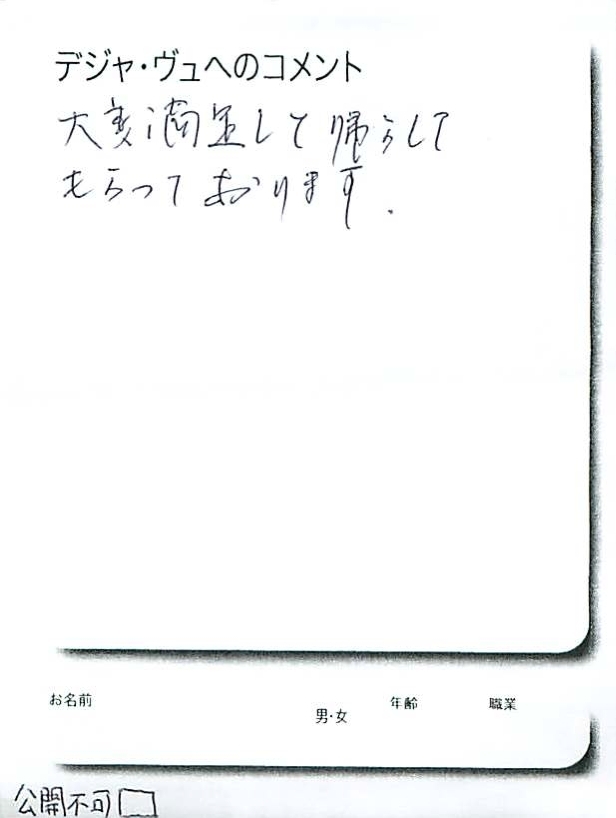 デジャ・ヴュへのコメント
大変満足して帰らして
もらっております.
お名前
男・女
年齢
職業
公開不可